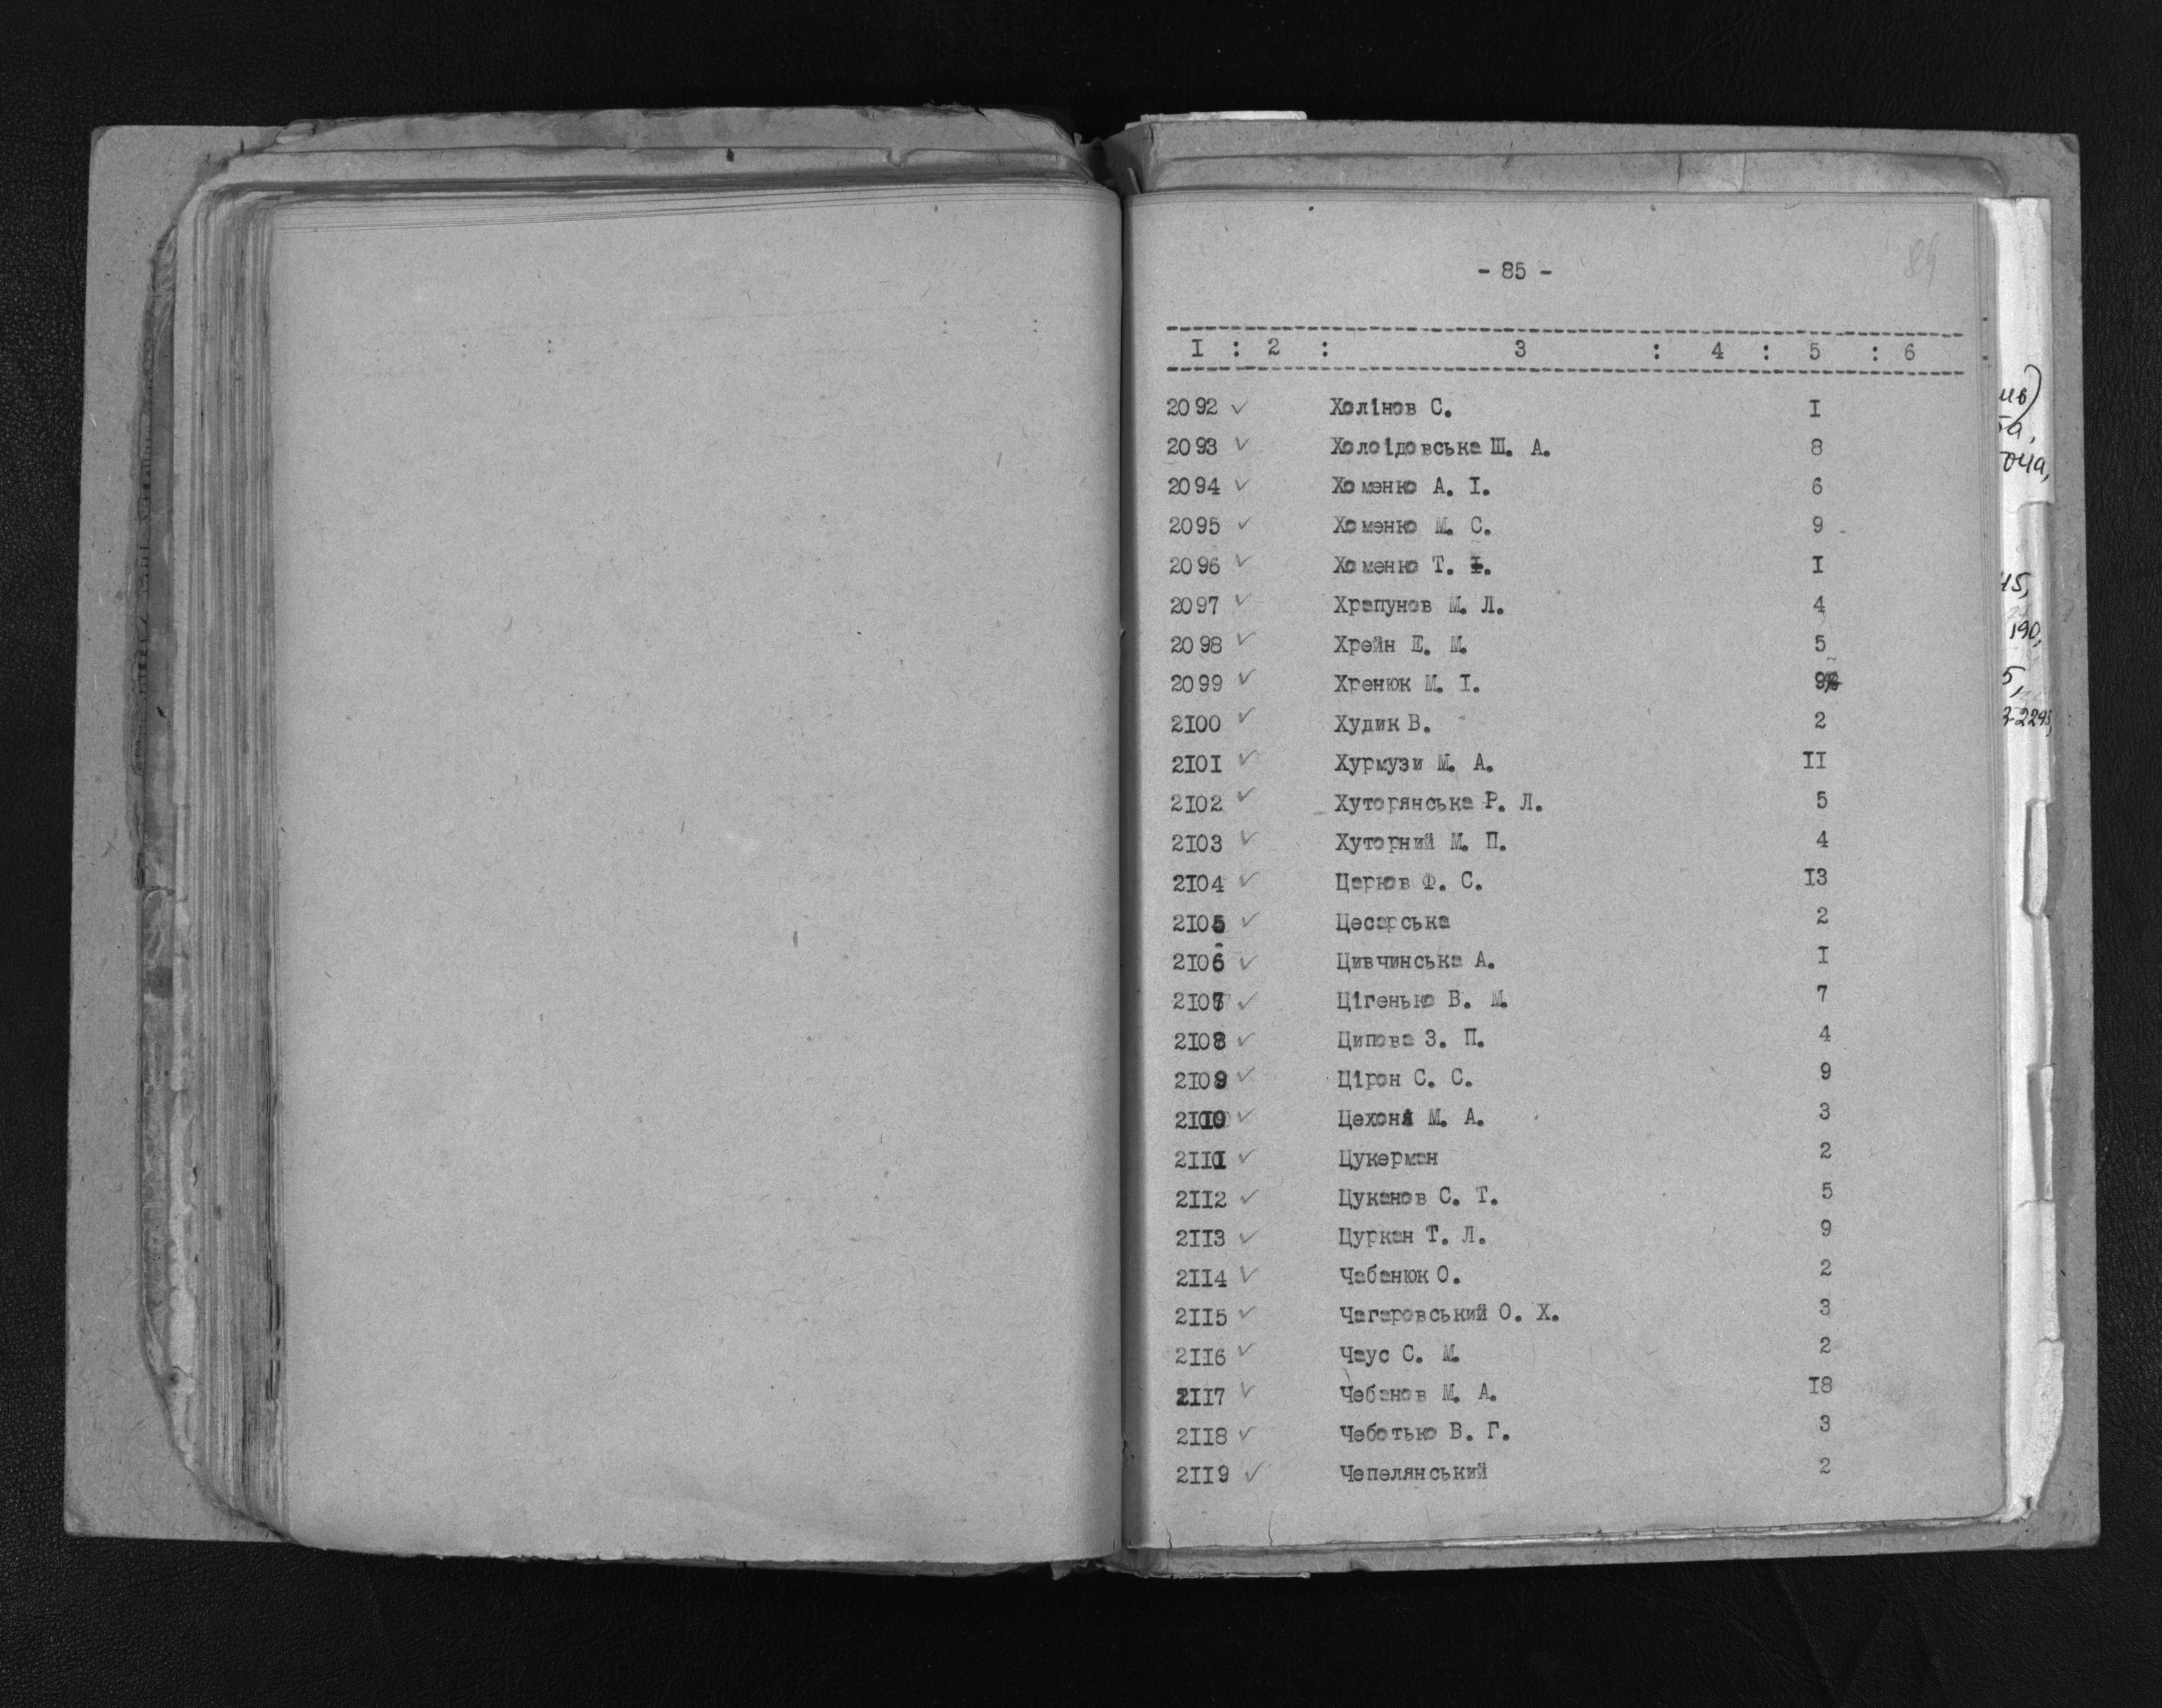 84
- 85 -
I : 2 : 3 : 4 : 5 : 6
2092 ✓ Холінов С. I
2093 ✓ Холоідовська Ш. А. 8
2094 ✓ Хоменко А. I. 6
2095 ✓ Хоменко М. С. 9
2096 ✓ Хоменко Т. I. I
2097 ✓ Храпунов М. Л. 4
2098 ✓ Хрейн Е. М. 5
2099 ✓ Хренюк М. I. 9
2100 ✓ Худик В. 2
2101 ✓ Хурмузи М. А. II
2102 ✓ Хуторянська Р. Л. 5
2103 ✓ Хуторний М. П. 4
2104 ✓ Царков Ф. С. I3
2105 ✓ Цесарська 2
2106 ✓ Цивчинська А. I
2107 ✓ Цігенько В. М. 7
2108 ✓ Ципова З. П. 4
2109 ✓ Цірон С. С. 9
2110 ✓ Цехоня М. А. 3
2111 ✓ Цукерман 2
2112 ✓ Цуканов С. Т. 5
2113 ✓ Цуркан Т. Л. 9
2114 ✓ Чабанюк О. 2
2115 ✓ Чагаровський О. Х. 3
2116 ✓ Чаус С. М. 2
2117 ✓ Чебанов М. А. I8
2118 ✓ Чеботько В. Г. 3
2119 ✓ Чепелянський 2
190,